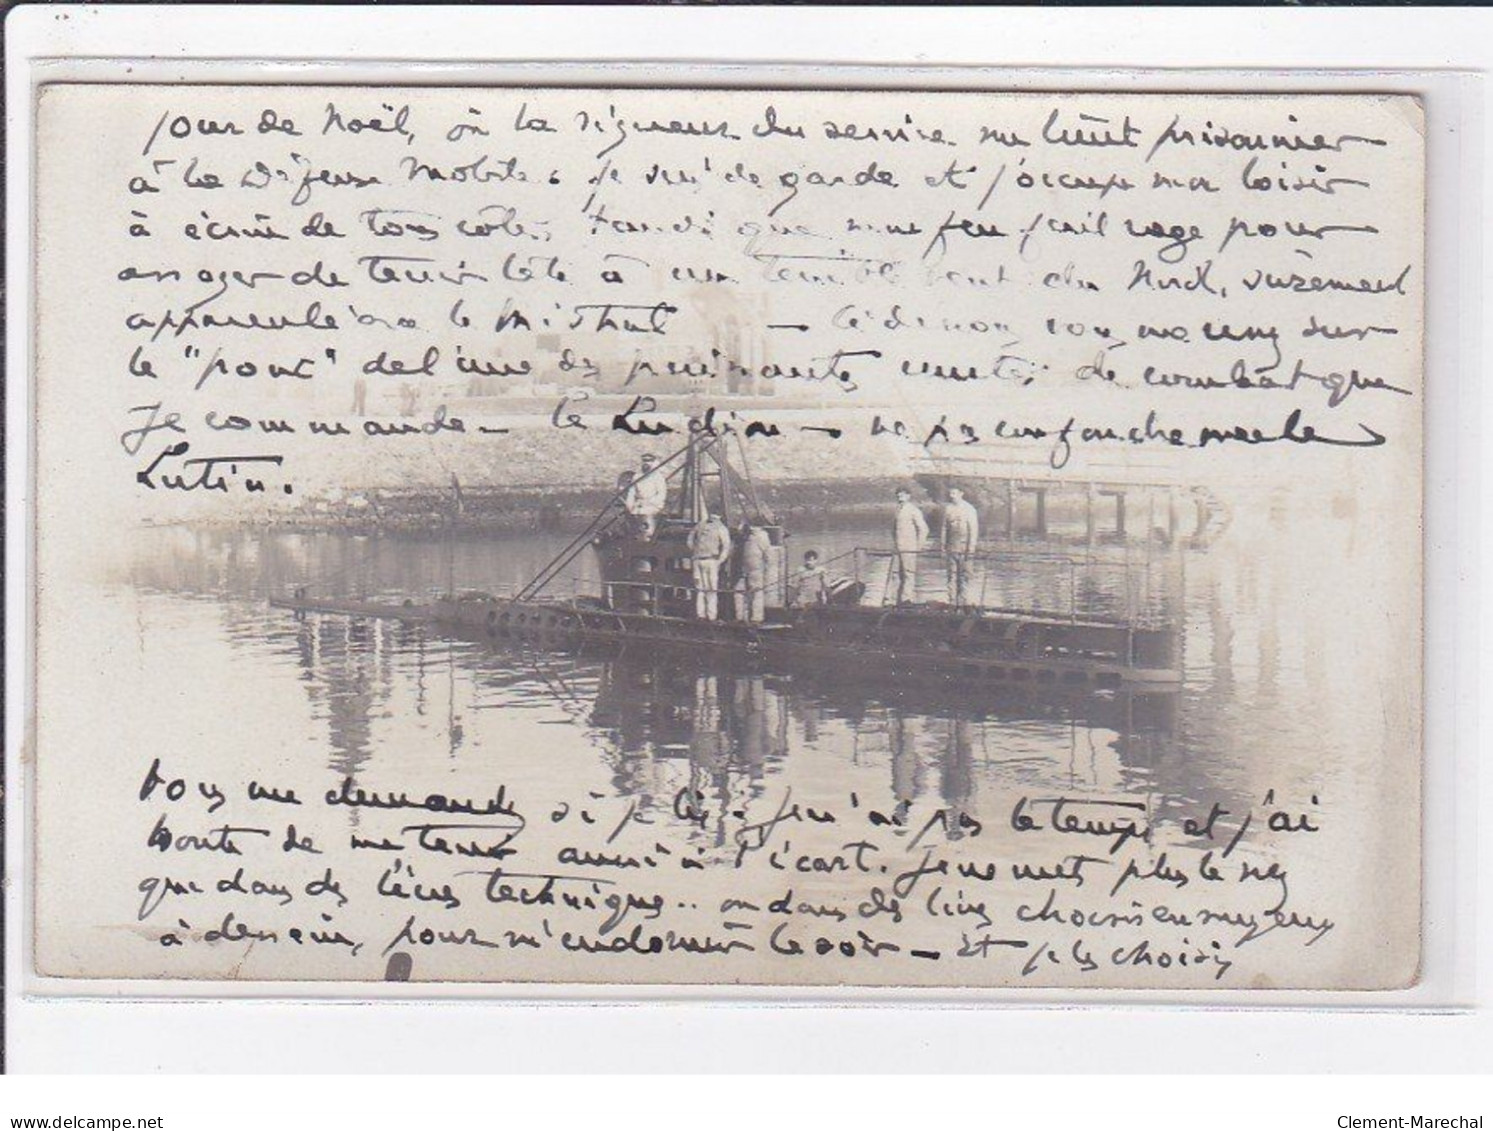 jour de Noël, où la rigueur du service me tient prisonnier
à la Défense Mobile. Je suis de garde et j'occupe mon loisir
à écrire de tous côtés tandis que mon feu fait rage pour
essayer de tenir tête à un terrible vent du Nord,
le Mistral — sur
le "pont" de l'une des puissantes unités de combat que
je commande — le Ludion — ne pas confondre avec le
Lutin.
Vous me demandez si je lis. Je n'ai pas le temps et j'ai
honte de me tenir aussi à l'écart. Je ne mets plus le nez
que dans des livres techniques.. ou dans des livres choisis ennuyeux
à dessein, pour m'endormir le soir — Et je les choisis
delcampe.net
Clement-Marechal